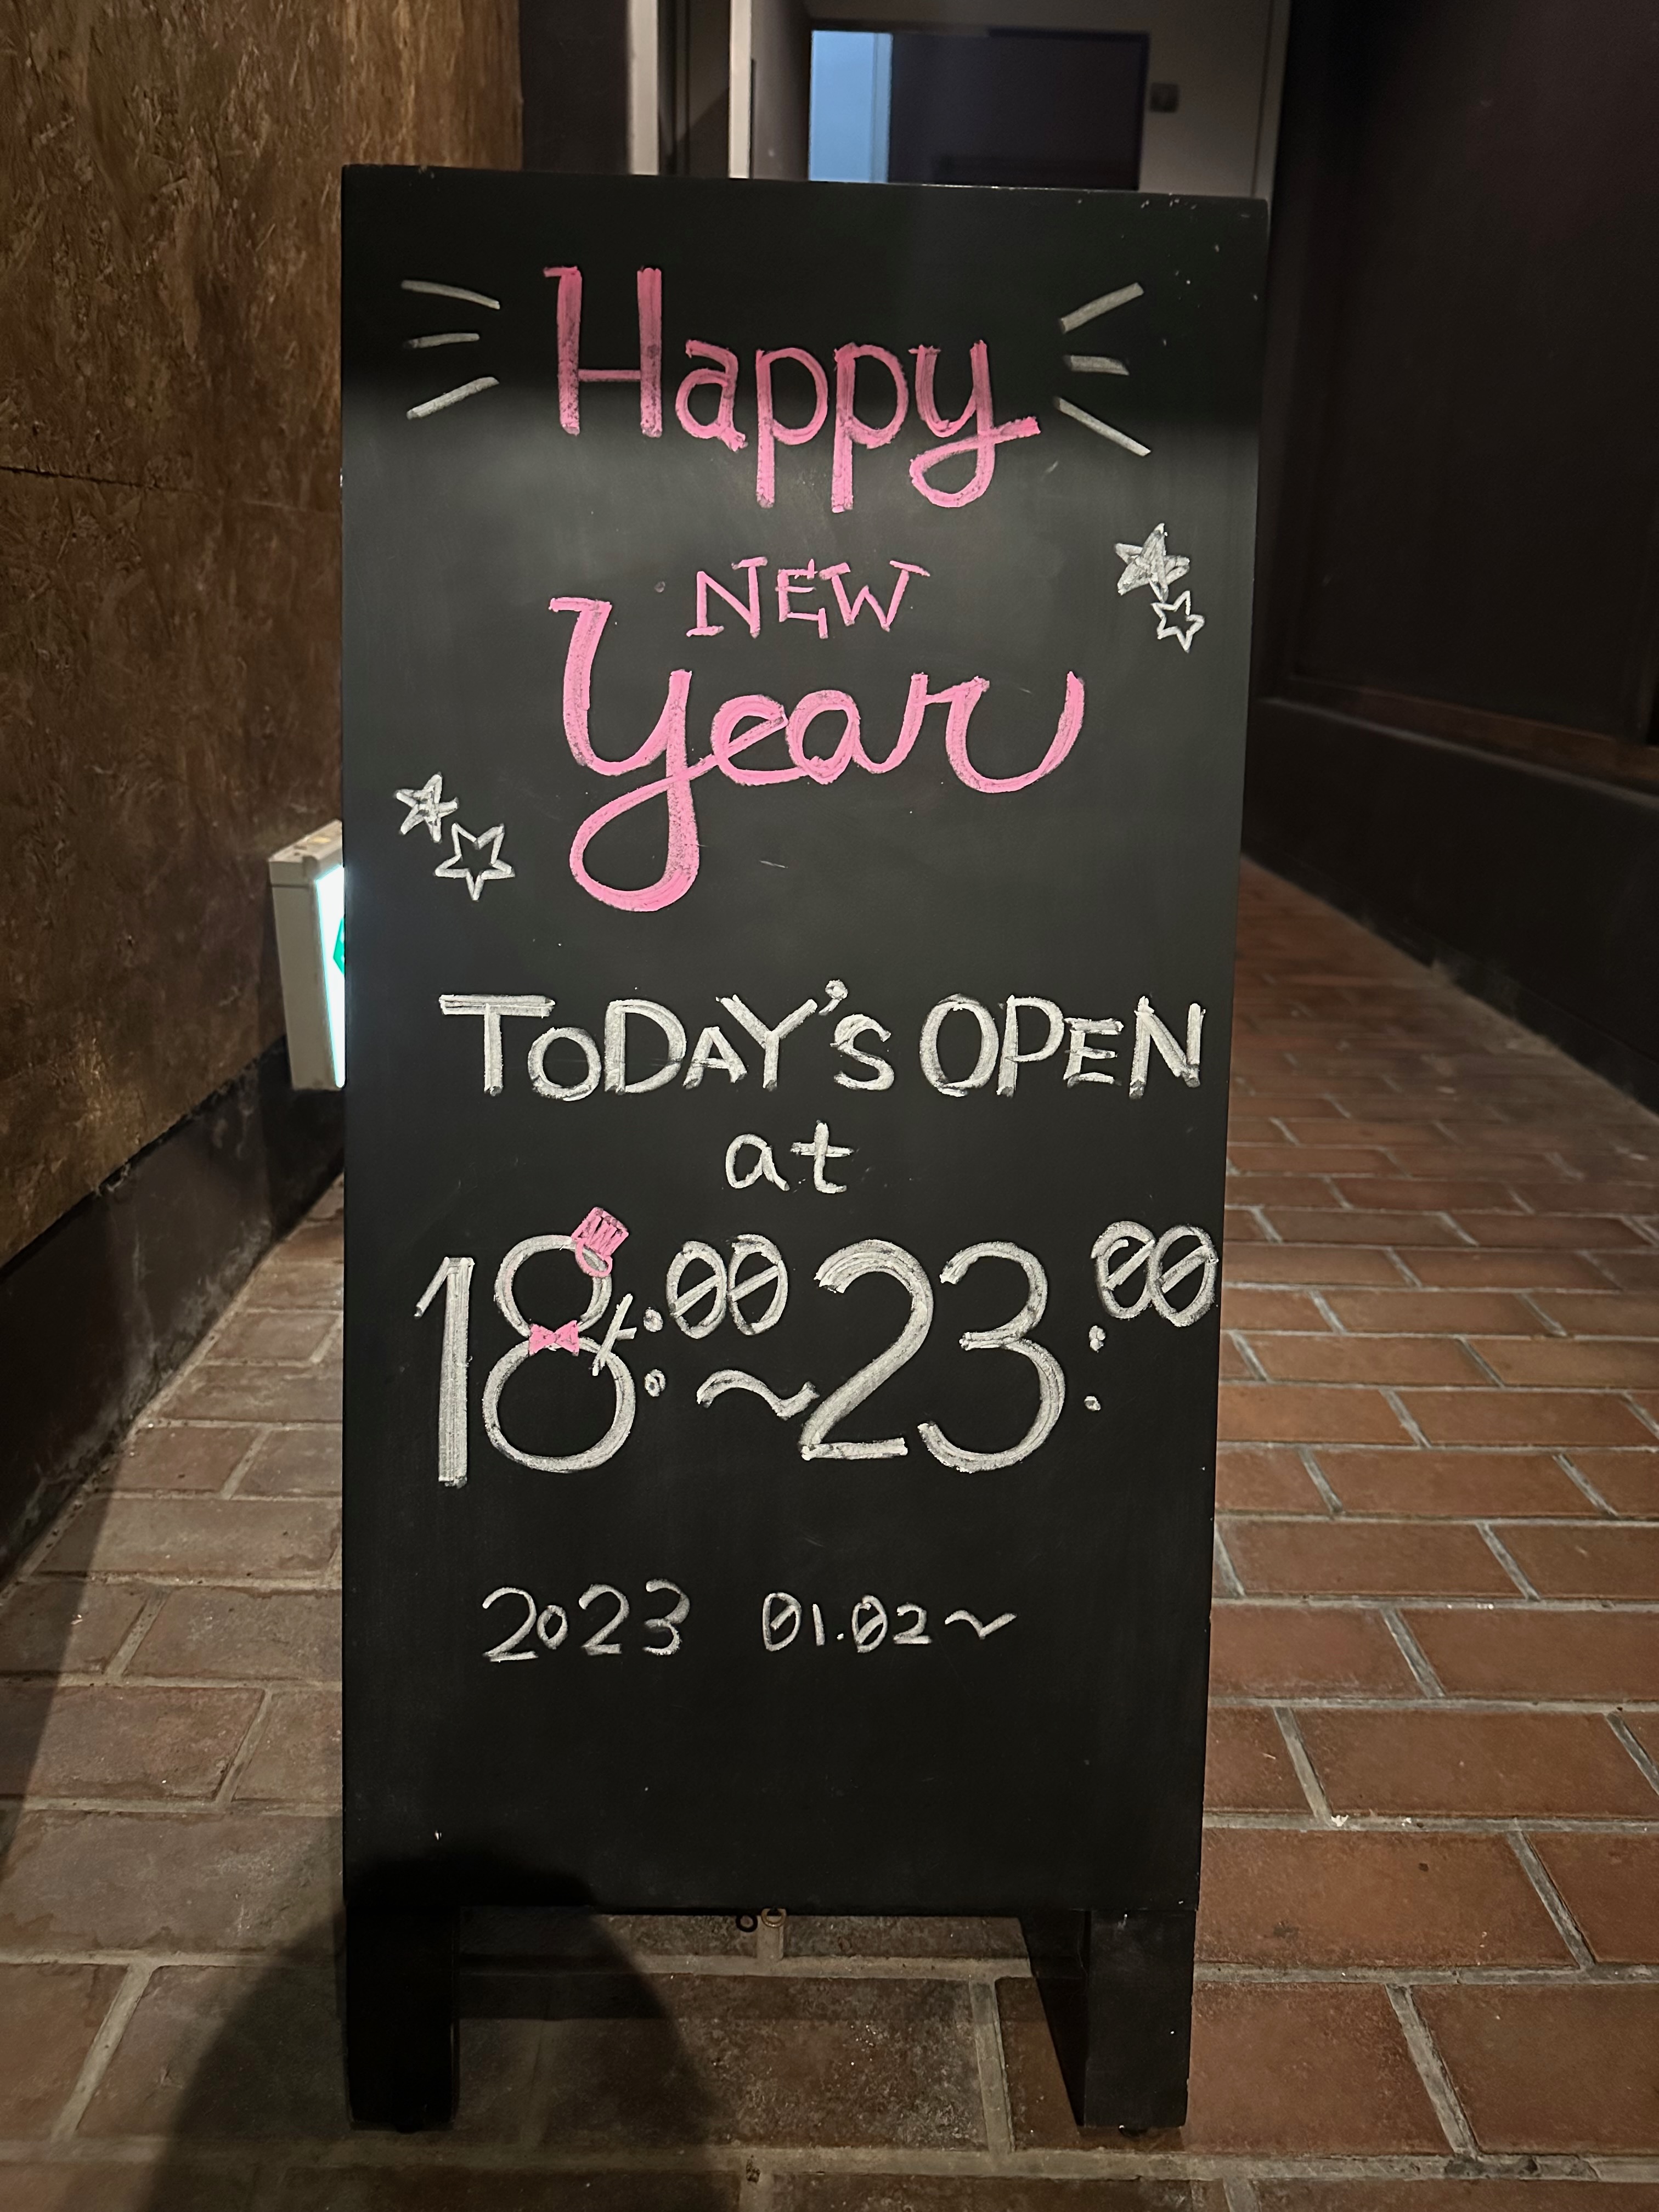 Happy
NEW
Year
TODAY'S OPEN
at
18:00~23:00
2023 01.02~